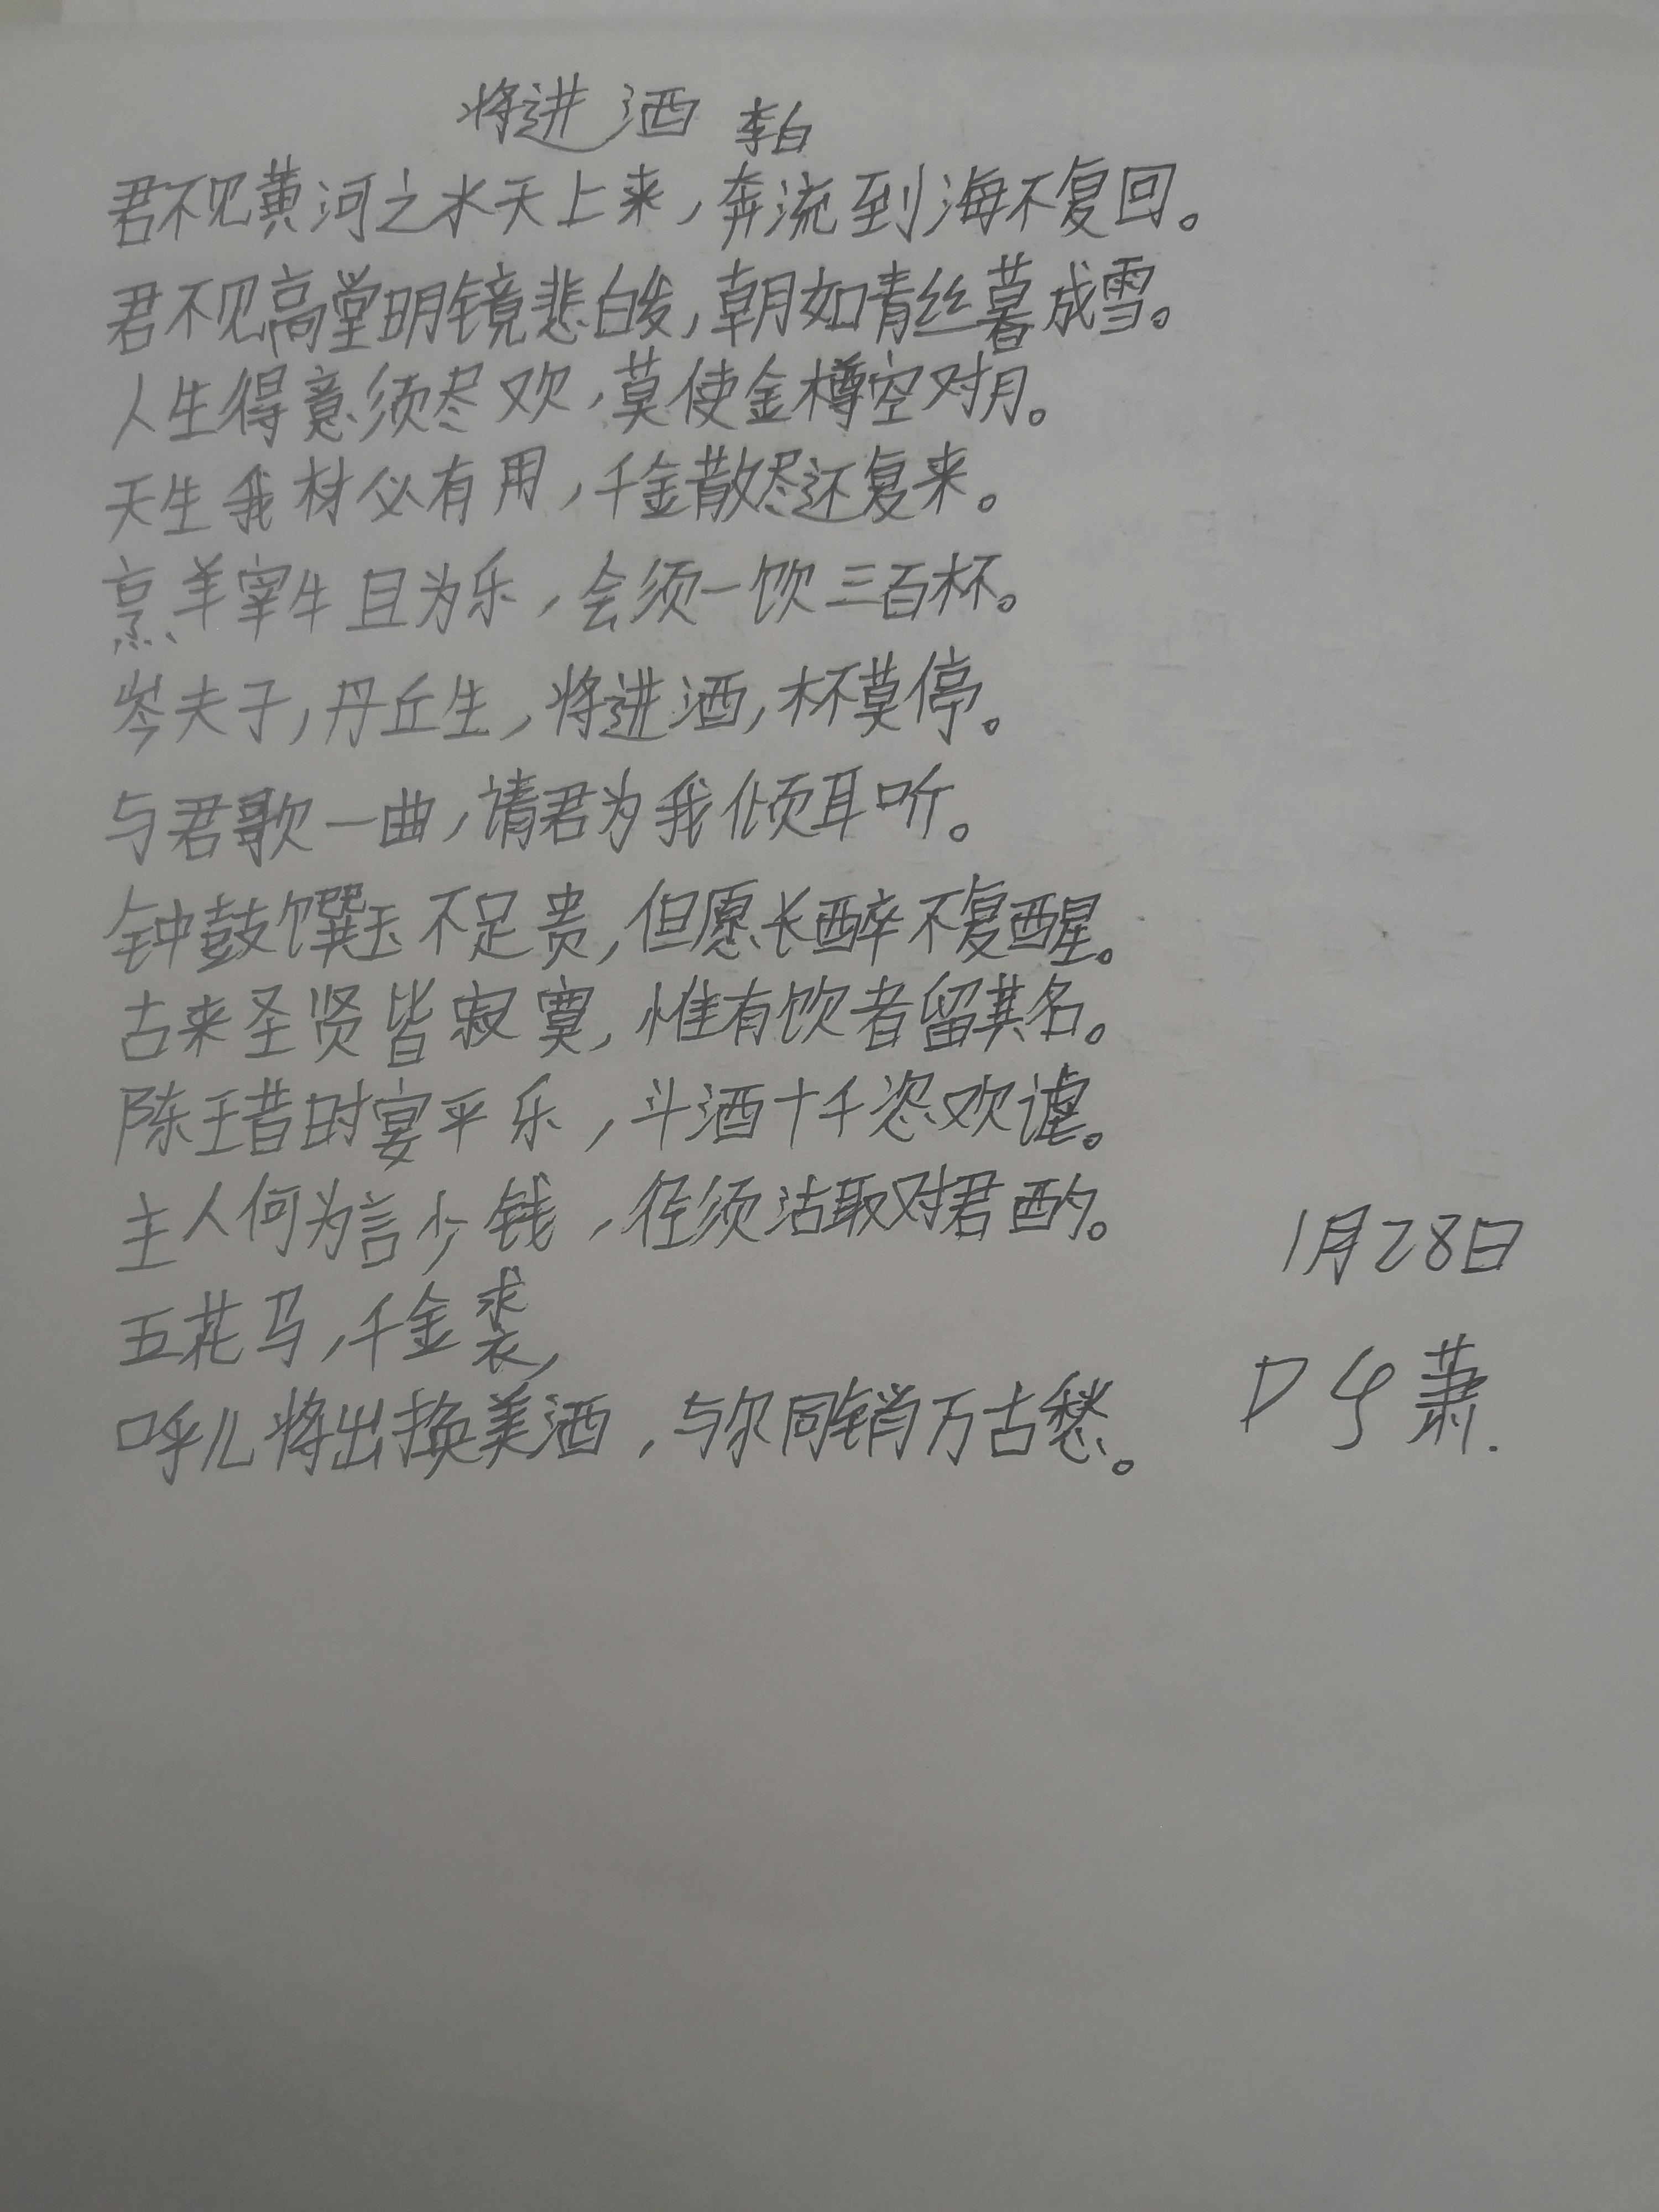 将进酒 李白
君不见黄河之水天上来,奔流到海不复回。
君不见高堂明镜悲白发,朝如青丝暮成雪。
人生得意须尽欢,莫使金樽空对月。
天生我材必有用,千金散尽还复来。
烹羊宰牛且为乐,会须一饮三百杯。
岑夫子,丹丘生,将进酒,杯莫停。
与君歌一曲,请君为我倾耳听。
钟鼓馔玉不足贵,但愿长醉不复醒。
古来圣贤皆寂寞,惟有饮者留其名。
陈王昔时宴平乐,斗酒十千恣欢谑。
主人何为言少钱,径须沽取对君酌。
五花马,千金裘,
呼儿将出换美酒,与尔同销万古愁。
1月28日
萧.